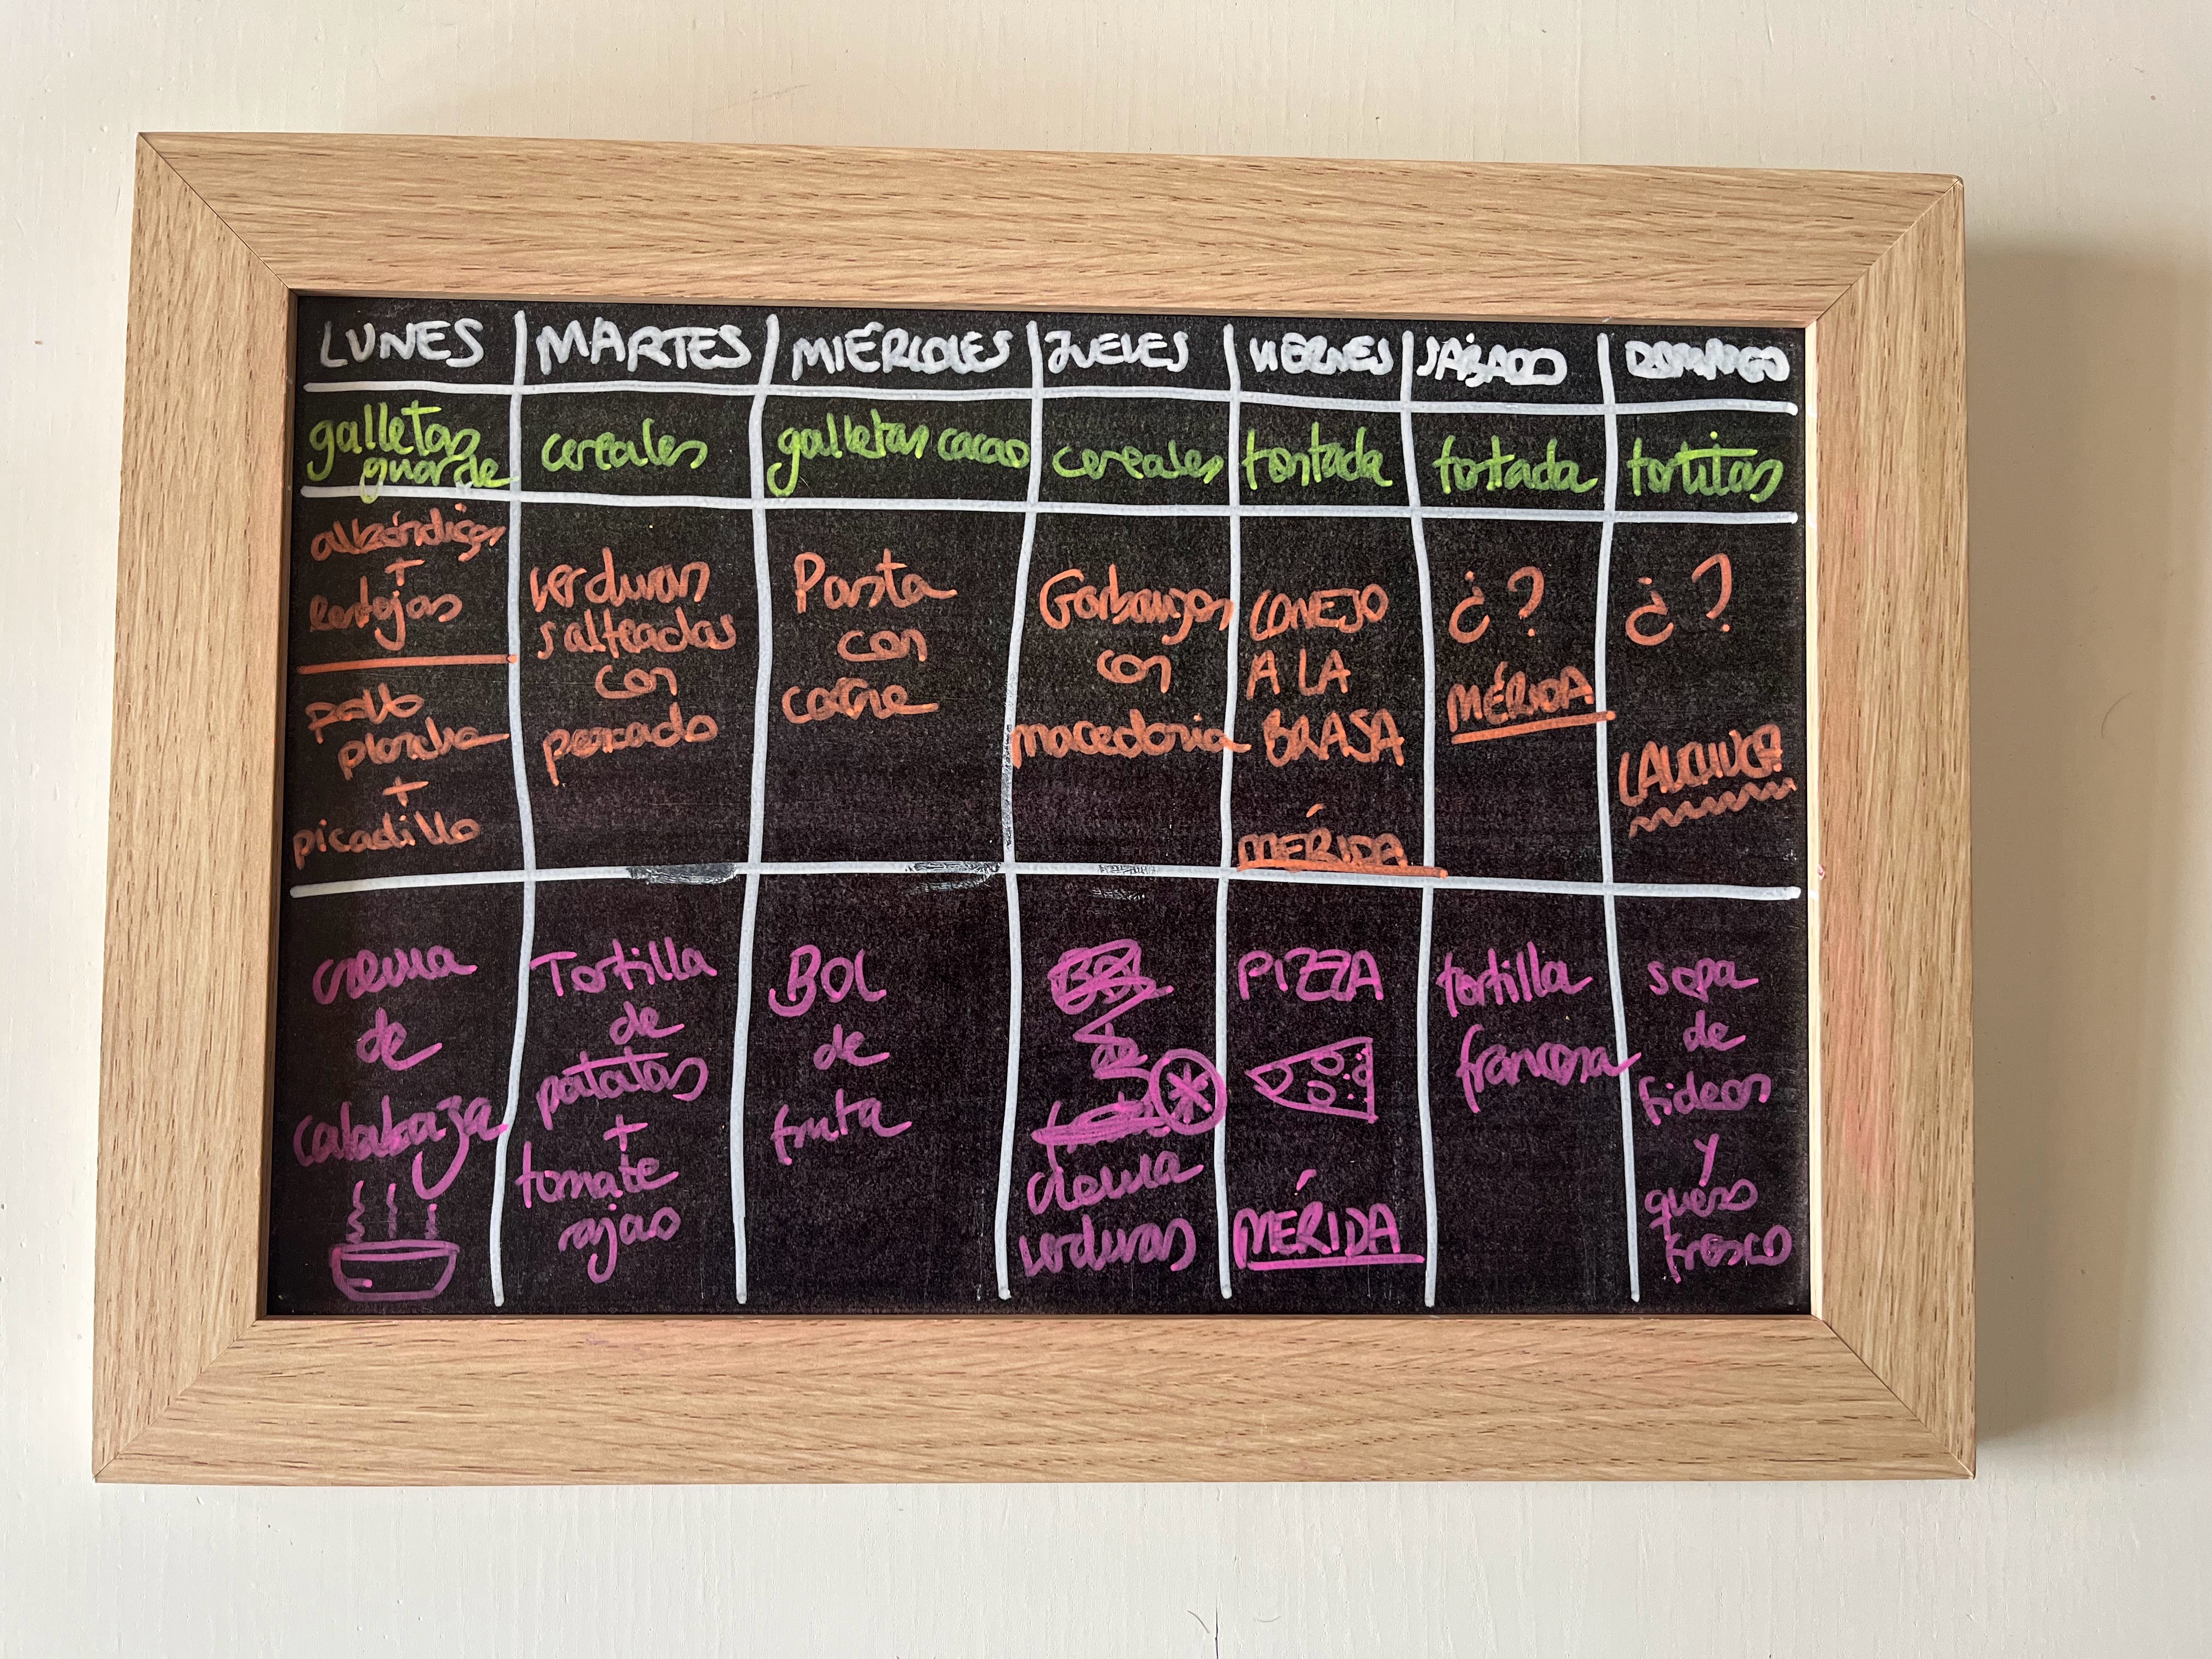 LUNES MARTES MIÉRCOLES JUEVES VIERNES SÁBADO DOMINGO
galletas guarde
cereales
galletas cacao
cereales
tostada
tostada
tortitas
albóndigas
+
lentejas
pollo
plancha
+
picadillo
verduras
salteadas
con
pescado
Pasta
con
carne
Garbanzos
con
macedonia
CONEJO
A LA
BRASA
MÉRIDA
¿?
MÉRIDA
¿?
crema
de
calabaza
Tortilla
de
patatas
+
tomate
rajas
BOL
de
fruta
BOL
de
fruta
crema
verduras
PIZZA
MÉRIDA
tortilla
francesa
sopa
de
fideos
y
queso
fresco